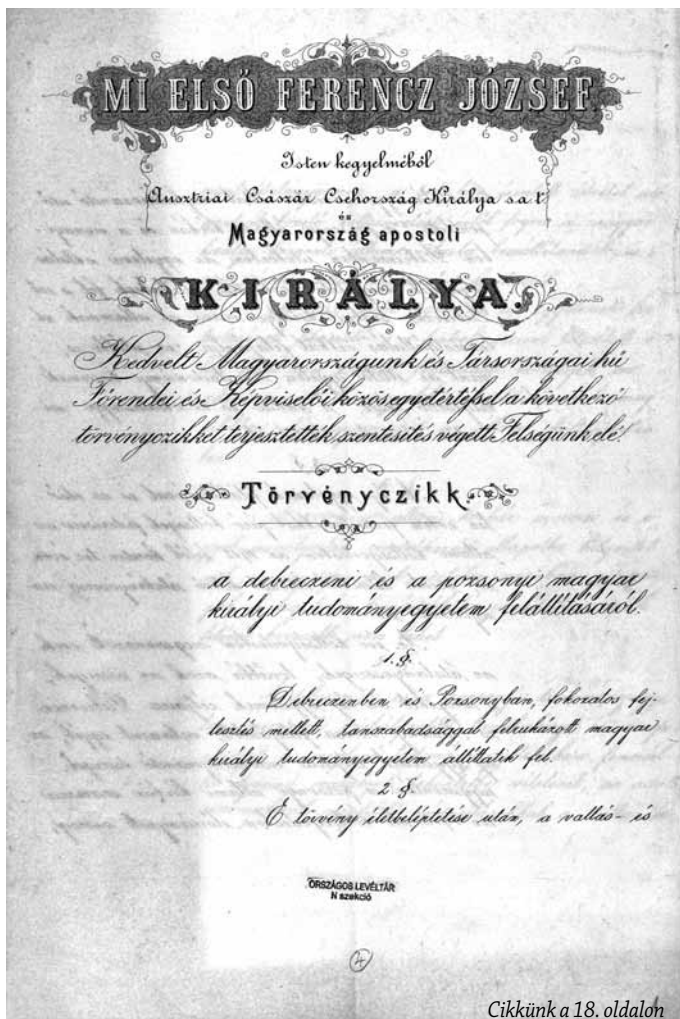 MI ELSŐ FERENCZ JÓZSEF.
Isten kegyelméből
Ausztriai Császár Csehország Királya s.a.t.
és
Magyarország apostoli
KIRÁLYA.
Kedvelt Magyarországunk és Társországai hű
Főrendei és Képviselői közös egyetértéssel a következő
törvényczikket terjesztették szentesités végett Felségünk elé!
Törvényczikk.
a debreczeni és a pozsonyi magyar
királyi tudományegyetem felállításáról.
1. §.
Debreczenben és Pozsonyban, fokozatos fej-
lesztés mellett, tanszabadsággal felruházott magyar
királyi tudományegyetem állíttatik fel.
2 §.
E törvény életbeléptetése után, a vallás- és
ORSZÁGOS LEVÉLTÁR
N szekció
4
Cikkünk a 18. oldalon